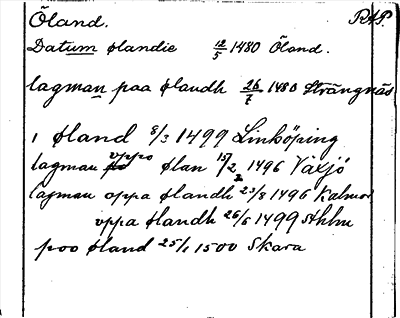 Öland. RAP.
Datum ølandie 12/5 1480 Öland.
lagman paa ølandh 26/7 1480 Strängnäs
i øland 8/3 1499 Linköping
lagman oppo ølan 15/2 1496 Växjö
lagman oppa ølandh 23/8 1496 Kalmar
oppa ølandh 26/5 1499 Sthlm
poo øland 25/1 1500 Skara